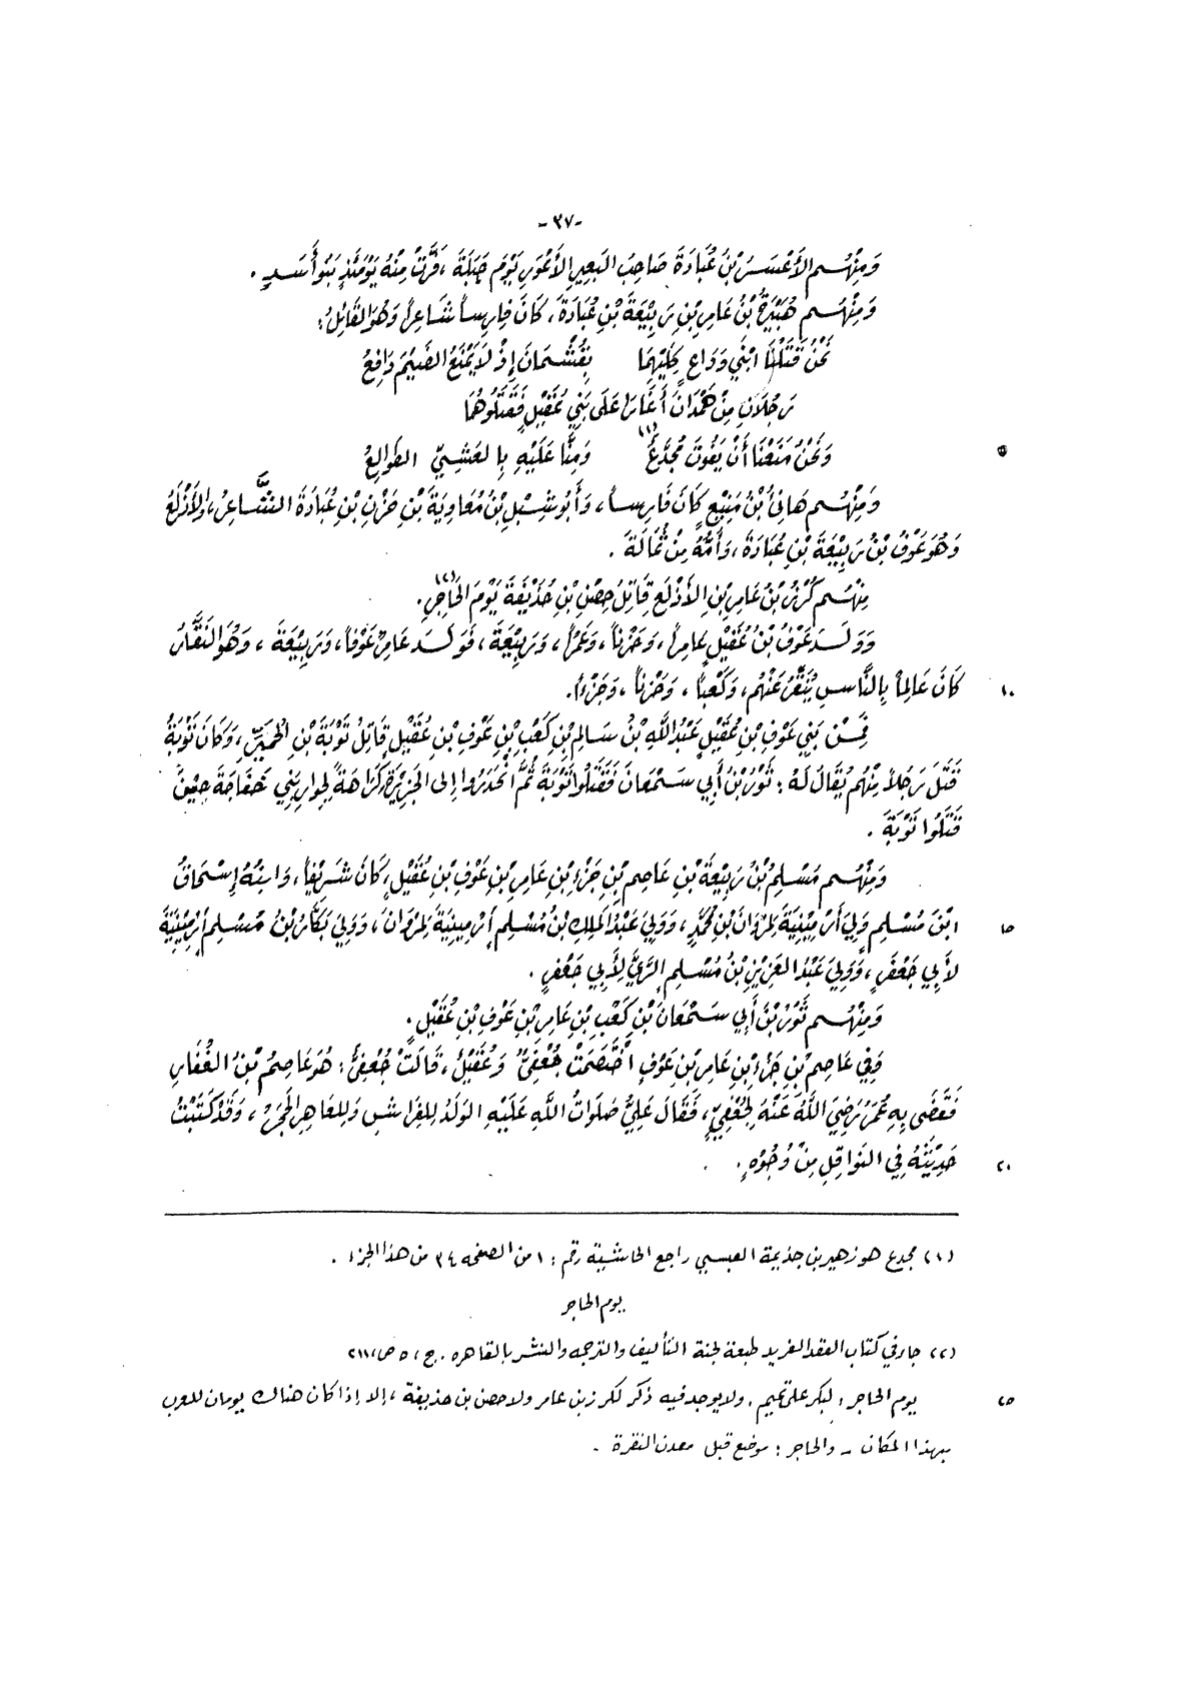 -٣٧-
وَمِنْهُم الأَعْسَرُ بْنُ عُبَادَةَ صَاحِبُ البَعِيرِ الأَعْوَرِ يَوْمَ جَبَلَةَ ، فَرَّتْ مِنْهُ يَوْمَئِذٍ بَنُو أَسَدٍ .
وَمِنْهُم هُبَيْرَةُ بْنُ عَامِرِ بْنِ رَبِيْعَةَ بْنِ عُبَادَةَ ، كَانَ فَارِساً شَاعِراً وَهُوَ القَائِلُ :
نَحْنُ قَتَلْنَا ابْنَي وَدَاعٍ كِلَيْهِمَا     بِقُشْمَانَ إِذْ لَا يَمْنَعُ الضَّيْمَ دَافِعُ
رَجُلَانِ مِنْ هَمْدَانَ أَغَارَا عَلَى بَنِي عُقَيْلٍ فَقَتَلُوهُمَا
٥ وَنَحْنُ مَنَعْنَا أَنْ يَفُوتَ مُجَدَّعُ (١)     وَمِنَّا عَلَيْهِ بِالعَشِيِّ الطَوالِعُ
وَمِنْهُم هَانِئُ بْنُ مَنِيْعٍ كَانَ فَارِساً ، وَأَبُو شِبْلِ بْنُ مُعَاوِيَةَ بْنِ حَزْنِ بْنِ عُبَادَةَ الشَّاعِرُ ، وَالأَذْلَعُ
وَهُوَ عَوْفُ بْنُ رَبِيْعَةَ بْنِ عُبَادَةَ ، وَأُمُّهُ مِنْ ثُمَالَةَ .
مِنْهُم كُرْزُ بْنُ عَامِرِ بْنِ الأَذْلَعِ قَاتِلُ حِصْنِ بْنِ حُذَيْفَةَ يَوْمَ الحَاجِرِ (٢) .
وَوَلَدَ عَوْفُ بْنُ عُقَيْلٍ عَامِراً ، وَحَزْناً ، وَعَمْراً ، وَرَبِيْعَةَ ، فَوَلَدَ عَامِرٌ عَوْفاً ، وَرَبِيْعَةَ ، وَهُوَ النَقَّارُ
١٠ كَانَ عَالِماً بِالنَّاسِ يُنَقِّرُ عَنْهُم ، وَكَعْباً ، وَحَزْناً ، وَجَزْءاً .
فَمِنْ بَنِي عَوْفِ بْنِ عُقَيْلٍ عَبْدُ اللَّهِ بْنُ سَالِمِ بْنِ كَعْبِ بْنِ عَوْفِ بْنِ عُقَيْلٍ قَاتِلُ تَوْبَةَ بْنِ الحُمَيِّرِ ، وَكَانَ تَوْبَةُ
قَتَلَ رَجُلاً مِنْهُم يُقَالُ لَهُ : ثَوْرُ بْنُ أَبِي سَمْعَانَ فَقَتَلُوا تَوْبَةَ ثُمَّ انْحَدَرُوا إِلى الجَزِيْرَةِ كَرَاهَةً لِجِوَارِ بَنِي خَفَاجَةَ حِيْنَ
قَتَلُوا تَوْبَةَ .
وَمِنْهُم مُسْلِمُ بْنُ رَبِيْعَةَ بْنِ عَاصِمِ بْنِ جَزْءِ بْنِ عَامِرِ بْنِ عَوْفِ بْنِ عُقَيْلٍ ، كَانَ شَرِيْفاً ، وَابْنُهُ إِسْحَاقُ
١٥ ابْنُ مُسْلِمٍ وَلِيَ أَرْمِيْنِيَةَ لِمَرْوَانَ بْنِ مُحَمَّدٍ ، وَوَلِيَ عَبْدُ المَلِكِ بْنُ مُسْلِمٍ أَرْمِيْنِيَةَ لِمَرْوَانَ ، وَوَلِيَ بَكَّارُ بْنُ مُسْلِمٍ أَرْمِيْنِيَةَ
لأَبِي جَعْفَرٍ ، وَوَلِيَ عَبْدُ العَزِيْزِ بْنُ مُسْلِمٍ الرَّيَّ لِأَبِي جَعْفَرٍ .
وَمِنْهُم ثَوْرُ بْنُ أَبِي سَمْعَانَ بْنِ كَعْبِ بْنِ عَامِرِ بْنِ عَوْفِ بْنِ عُقَيْلٍ .
وَفِي عَاصِمِ بْنِ جَزْءِ بْنِ عَامِرِ بْنِ عَوْفٍ اخْتَصَمَتْ جُعْفِيُّ وَعُقَيْلٌ ، قَالَتْ جُعْفِيُّ : هُوَ عَاصِمُ بْنُ الغُفَارِ
فَقَضَى بِهِ عُمَرُ رَضِيَ اللَّهُ عَنْهُ لِجُعْفِيٍّ ، فَقَالَ عَلِيٌّ صَلَوَاتُ اللَّهِ عَلَيْهِ الوَلَدُ لِلفِرَاشِ وَلِلعَاهِرِ الحَجَرُ ، وَقَدْ كَتَبْتُ
٢٠ حَدِيْثَهُ فِي النَوَاقِلِ مِنْ وُجُوْهٍ .
(١) مجدع هو زهير بن جذيمة العبسي راجع الحاشية رقم : ١ من الصفحه ٣٤ من هذا الجزء .
يوم الحاجر
(٢) جاء في كتاب العقد الفريد طبعة لجنة التأليف والترجمه والنشر بالقاهره . ج ، ٥ ص ، ٢١١
٢٥ يوم الحاجر : لبكر على تميم . ولا يوجد فيه ذكر لكرز بن عامر ولا حصن بن حذيفة ، إلا إذا كان هناك يومان للعرب
بهذا المكان - والحاجر : موضع قبل معدن النقرة .